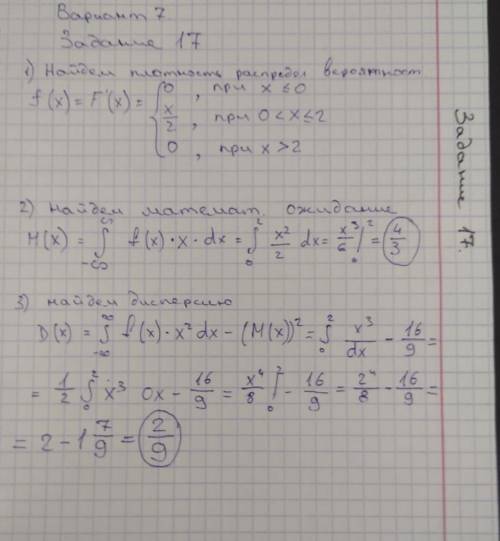 Вариант 7
Задание 17
1) Найдем плотность распредел вероятност
f(x) = F'(x) = { 0, при x ≤ 0
x/2, при 0 < x ≤ 2
0, при x > 2
2) найдем математ. ожидание
M(x) = ∫_{-∞}^{∞} f(x) · x · dx = ∫_0^2 x²/2 dx = x³/6 |_0^2 = 4/3
3) найдем дисперсию
D(x) = ∫_{-∞}^{∞} f(x) · x² dx - (M(x))² = ∫_0^2 x³/dx - 16/9 =
= 1/2 ∫_0^2 x³ 0x - 16/9 = x⁴/8 |_0^2 - 16/9 = 2⁴/8 - 16/9 =
= 2 - 1 7/9 = 2/9
Задание 17.